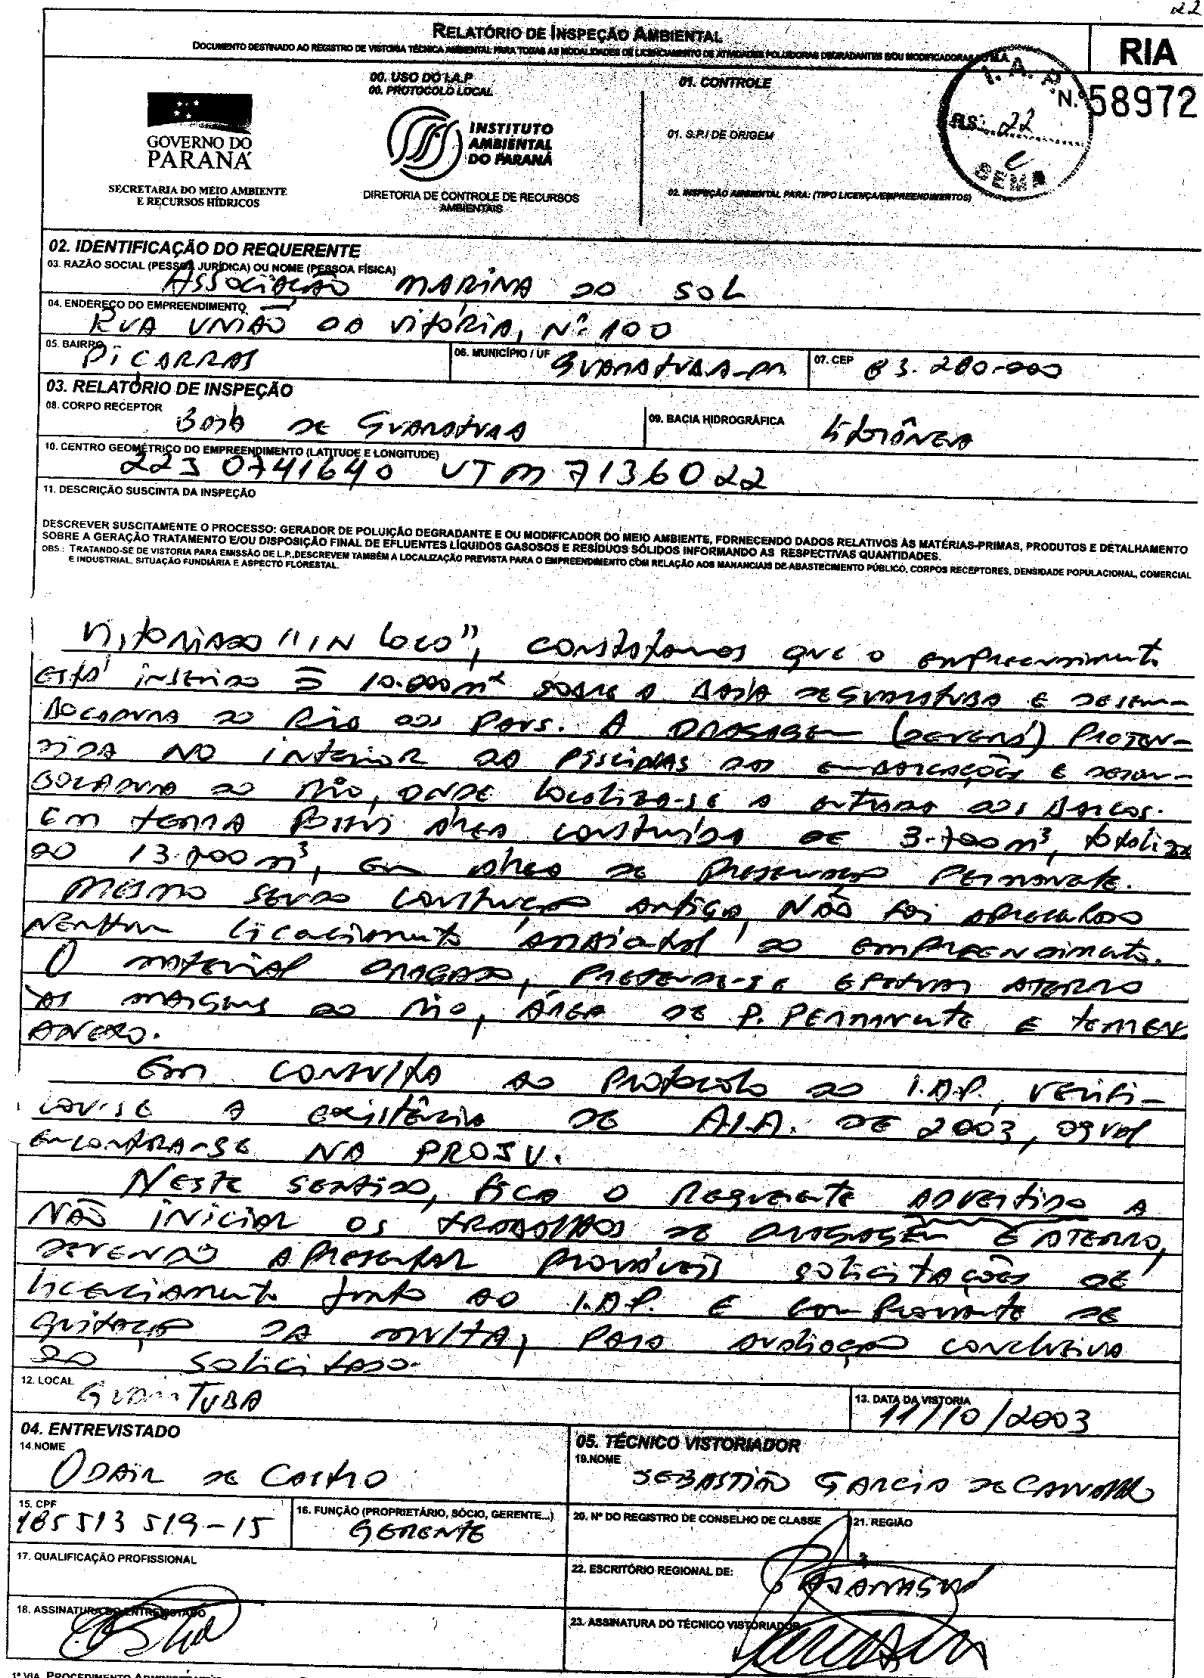 22
RELATÓRIO DE INSPEÇÃO AMBIENTAL
DOCUMENTO DESTINADO AO REGISTRO DE VISTORIA TÉCNICA AMBIENTAL PARA TODAS AS MODALIDADES DE LICENCIAMENTO DE ATIVIDADES POLUIDORAS DEGRADANTES E/OU MODIFICADORAS DO M.A.
RIA
N.º 58972
I. A. P.
FLS: 22
SEMA
GOVERNO DO
PARANÁ
SECRETARIA DO MEIO AMBIENTE
E RECURSOS HÍDRICOS
00. USO DO I.A.P
00. PROTOCOLO LOCAL
INSTITUTO
AMBIENTAL
DO PARANÁ
DIRETORIA DE CONTROLE DE RECURSOS
AMBIENTAIS
01. CONTROLE
01. S.P.I DE ORIGEM
02. INSPEÇÃO AMBIENTAL PARA: (TIPO LICENÇA/EMPREENDIMENTOS)
02. IDENTIFICAÇÃO DO REQUERENTE
03. RAZÃO SOCIAL (PESSOA JURÍDICA) OU NOME (PESSOA FÍSICA)
ASSOCIAÇÃO MARINA DO SOL
04. ENDEREÇO DO EMPREENDIMENTO
RUA UNIÃO DA VITÓRIA, Nº 100
05. BAIRRO
PIÇARRAS
06. MUNICÍPIO / UF
GUARATUBA-PR
07. CEP
83.280-000
03. RELATÓRIO DE INSPEÇÃO
08. CORPO RECEPTOR
BAÍA DE GUARATUBA
09. BACIA HIDROGRÁFICA
LITORÂNEA
10. CENTRO GEOMÉTRICO DO EMPREENDIMENTO (LATITUDE E LONGITUDE)
22J 0741640 UTM 7136022
11. DESCRIÇÃO SUSCINTA DA INSPEÇÃO
DESCREVER SUSCITAMENTE O PROCESSO: GERADOR DE POLUIÇÃO DEGRADANTE E OU MODIFICADOR DO MEIO AMBIENTE, FORNECENDO DADOS RELATIVOS ÀS MATÉRIAS-PRIMAS, PRODUTOS E DETALHAMENTO
SOBRE A GERAÇÃO TRATAMENTO E/OU DISPOSIÇÃO FINAL DE EFLUENTES LÍQUIDOS GASOSOS E RESÍDUOS SÓLIDOS INFORMANDO AS RESPECTIVAS QUANTIDADES.
OBS.: TRATANDO-SE DE VISTORIA PARA EMISSÃO DE L.P., DESCREVEM TAMBÉM A LOCALIZAÇÃO PREVISTA PARA O EMPREENDIMENTO COM RELAÇÃO AOS MANANCIAIS DE ABASTECIMENTO PÚBLICO, CORPOS RECEPTORES, DENSIDADE POPULACIONAL, COMERCIAL
E INDUSTRIAL, SITUAÇÃO FUNDIÁRIA E ASPECTO FLORESTAL.
VISTORIADO "IN LOCO", CONSTATAMOS QUE O EMPREENDIMENTO
ESTÁ INSERIDO 10.000m² SOBRE A BAÍA DE GUARATUBA E DESEM-
BOCADURA DO RIO DOS PAUS. A DRAGAGEM (DEVERÁ) PRETEN-
DIDA NO INTERIOR DA PISCINAS DAS EMBARCAÇÕES E DESEM-
BOCADURA DO RIO, ONDE LOCALIZA-SE A ENTRADA DOS BARCOS.
EM TERRA POSSUI ÁREA CONSTRUÍDA DE 3.700m³, TOTALIZAN
DO 13.700m³, EM ÁREA DE PRESERVAÇÃO PERMANENTE.
MESMO SENDO CONSTRUÇÃO ANTIGA, NÃO FOI APRESENTADO
NENHUM LICENCIAMENTO AMBIENTAL DO EMPREENDIMENTO.
O MATERIAL DRAGADO, PRETENDE-SE EFETUAR ATERRO
ÀS MARGENS DO RIO, ÁREA DE P. PERMANENTE E TERRENO
ANEXO.
EM CONSULTA AO PROTOCOLO DO I.A.P., VERIFI-
COU-SE A EXISTÊNCIA DE A.I.A. DE 2003, O QUAL
ENCONTRA-SE NA PROJU.
NESTE SENTIDO, FICA O REQUERENTE ADVERTIDO A
NÃO INICIAR OS TRABALHOS DE DRAGAGEM E ATERRO,
DEVENDO APRESENTAR PROVÁVEIS SOLICITAÇÕES DE
LICENCIAMENTO JUNTO AO I.A.P. E COMPROVANTE DE
QUITAÇÃO DA MULTA, PARA AVALIAÇÃO CONCLUSIVA
DO SOLICITADO.
12. LOCAL
GUARATUBA
13. DATA DA VISTORIA
11/10/2003
04. ENTREVISTADO
14. NOME
ODAIR DE CASTRO
05. TÉCNICO VISTORIADOR
19. NOME
SEBASTIÃO GARCIA DE CARVALHO
15. CPF
185 513 519-15
16. FUNÇÃO (PROPRIETÁRIO, SÓCIO, GERENTE...)
GERENTE
20. Nº DO REGISTRO DE CONSELHO DE CLASSE
21. REGIÃO
17. QUALIFICAÇÃO PROFISSIONAL
22. ESCRITÓRIO REGIONAL DE:
PARANAGUÁ
18. ASSINATURA DO ENTREVISTADO
23. ASSINATURA DO TÉCNICO VISTORIADOR
1ª VIA. PROCEDIMENTO